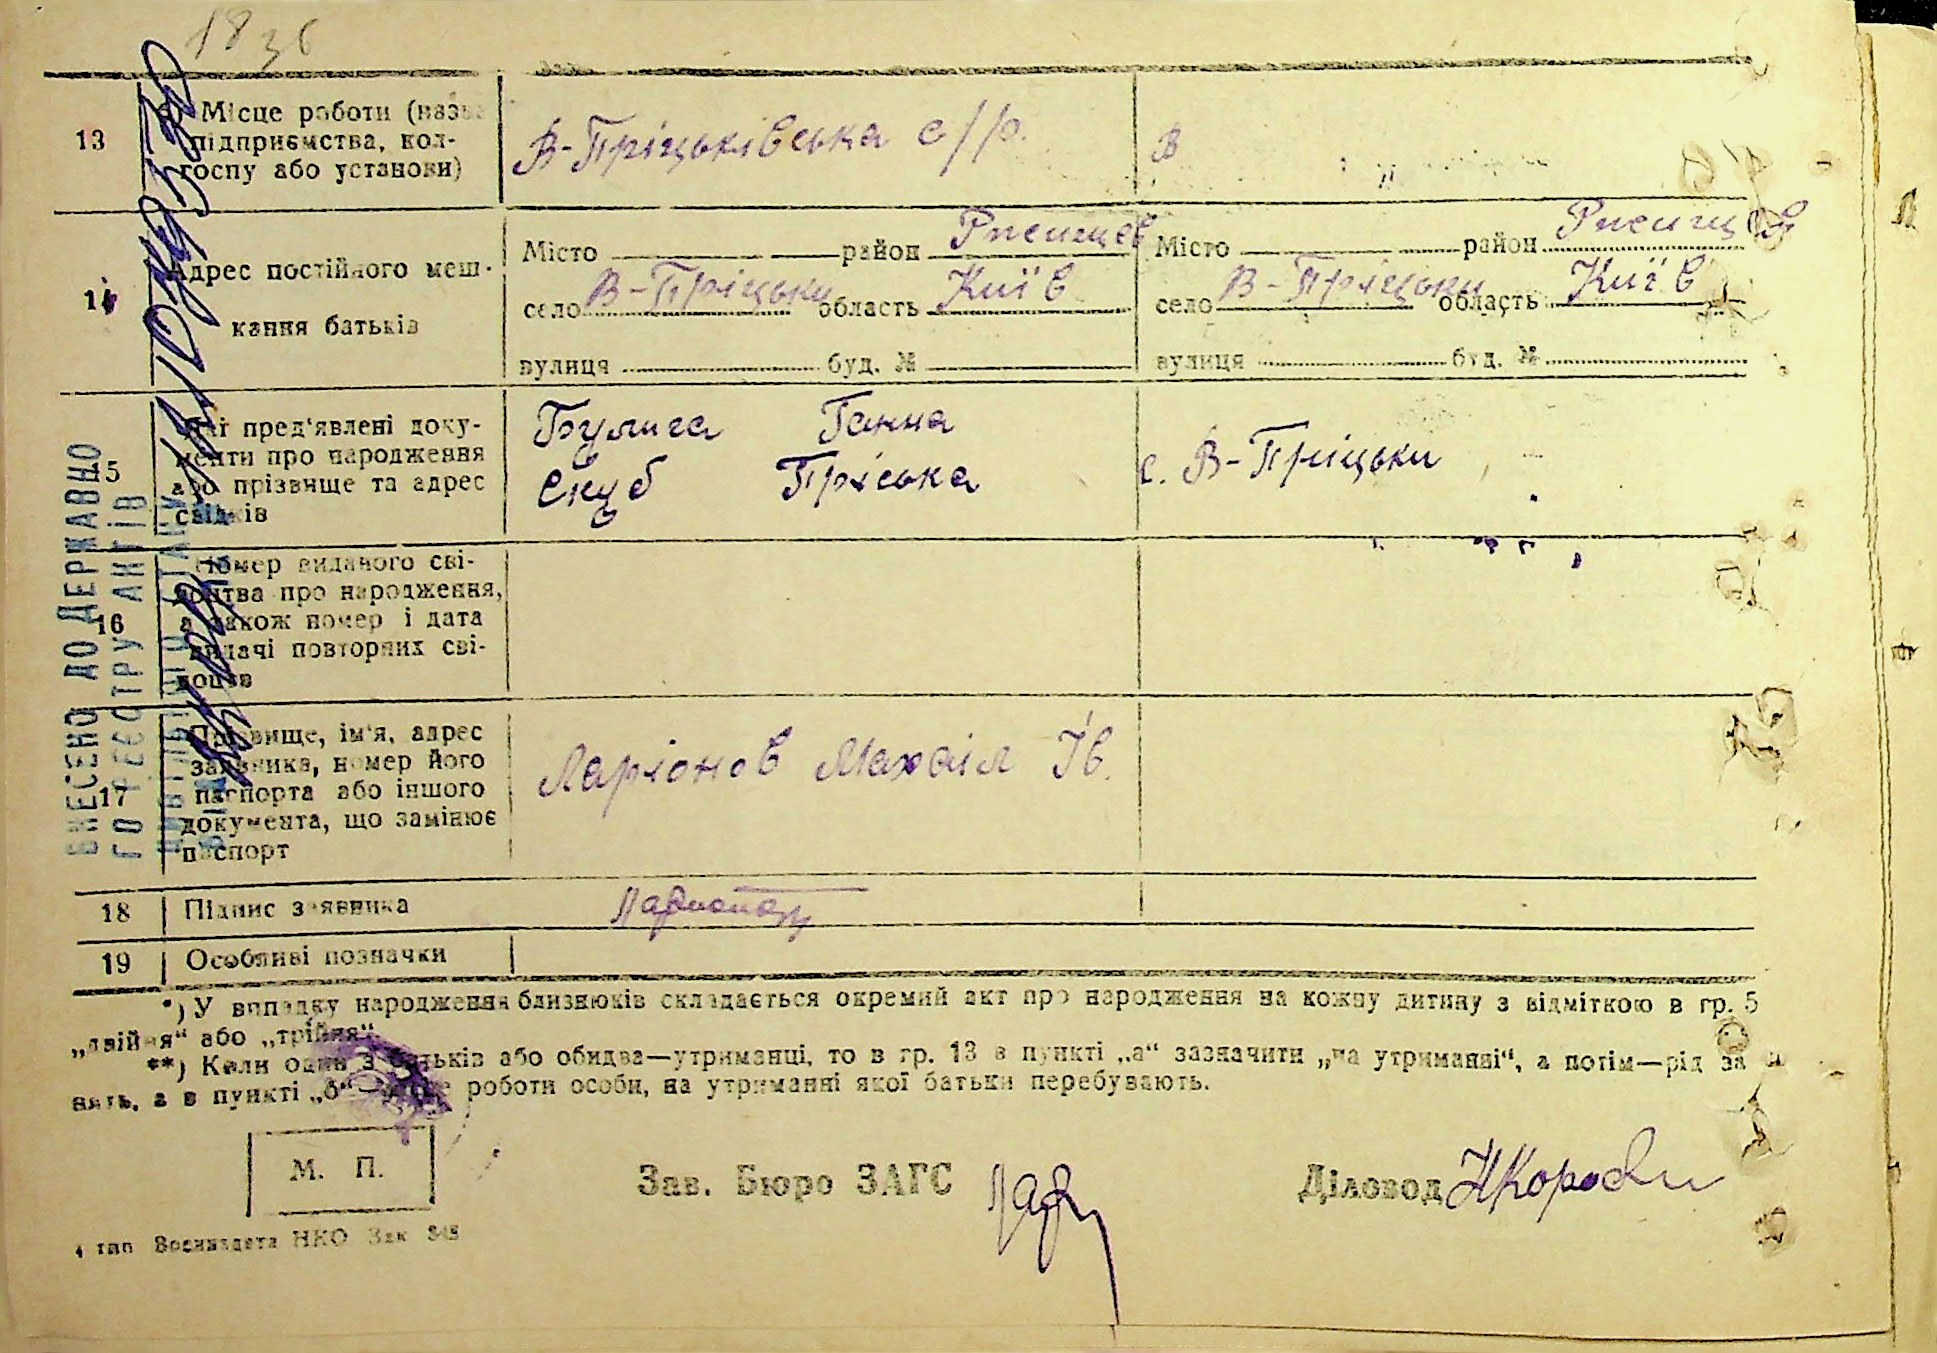 18 зв
13 б) Місце роботи (назва підприємства, колгоспу або установи)
В-Пріцьківська с/р.
В
14 Адрес постійного мешкання батьків
Місто район Ржищев
село В-Пріцьки область Київ
вулиця буд. №
Місто район Ржищев
село В-Пріцьки область Київ
вулиця буд. №
15 Які пред'явлені документи про народження або прізвище та адрес свідків
Булига Ганна
Скуб Пріська
с. В-Пріцьки
16 Номер виданого свідоцтва про народження, а також номер і дата видачі повторних свідоцтв
17 Прізвище, ім'я, адрес заявника, номер його паспорта або іншого документа, що замінює паспорт
Ларіонов Махаіл Ів.
18 Підпис заявника
19 Особливі позначки
*) У випадку народження близнюків складається окремий акт про народження на кожну дитину з відміткою в гр. 5
„двійня“ або „трійня“.
**) Коли один з батьків або обидва—утриманці, то в гр. 13 в пункті „а“ зазначити „на утриманні“, а потім—рід за
нять, а в пункті „б“ роботи особи, на утриманні якої батьки перебувають.
М. П.
Зав. Бюро ЗАГС
Діловод
НКО Зак
ВНЕСЕНО ДО ДЕРЖАВНО
ГО РЕЄСТРУ АКТІВ
ЦИВІЛЬНОГО СТАНУ